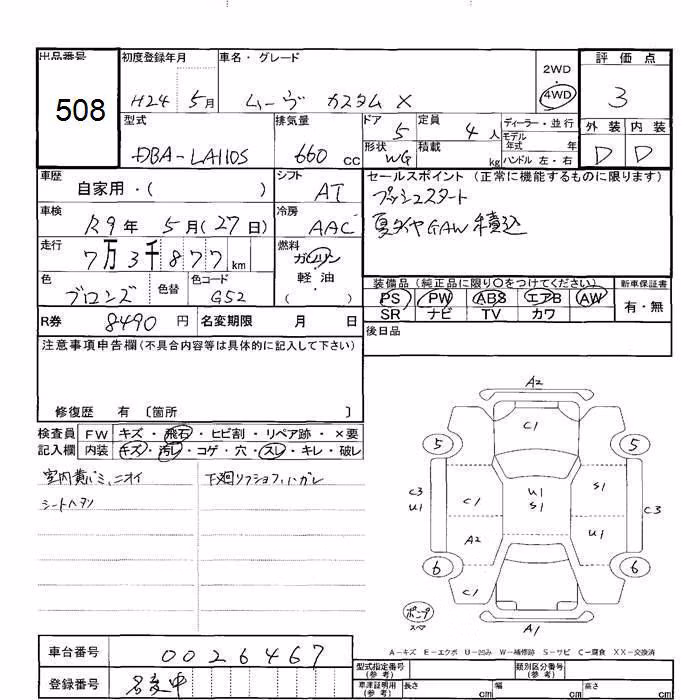 出品番号 508
初度登録年月 H24 5月
車名・グレード ムーヴ カスタム X
2WD・4WD
評価点 3
外装 内装
D D
型式 DBA-LA110S
排気量 660 cc
ドア 5
定員 4人
形状 WG
積載 kg
ディーラー・並行
モデル年式 年
ハンドル 左・右
車歴 自家用・( )
シフト AT
セールスポイント (正常に機能するものに限ります)
プッシュスタート
夏タイヤGAW積込
車検 R9年 5月(27日)
冷房 AAC
走行 7万3千877km
燃料 ガソリン 軽・油 ・( )
色 ブロンズ
色替
色コード G52
装備品 (純正品に限り○をつけてください)
PS PW ABS エアB AW
SR ナビ TV カワ
新車保証書 有・無
R券 8490円
名変期限 月 日
後日品
注意事項申告欄(不具合内容等は具体的に記入して下さい)
修復歴 有 〔箇所 〕
検査員記入欄
FW キズ・飛石・ヒビ割・リペア跡・×要
内装 キズ・汚レ・コゲ・穴・スレ・キレ・破レ
室内黄バミ、ニオイ
シートヘタリ
下廻リ
A2
C1
5 5
C3 U1
C1
U1 S1
S1
C3
A2
U1
6 6
C1
A1
A-キズ E-エクボ U-凹み W-補修跡 S-サビ C-腐食 XX-交換済
車台番号 0026467
登録番号 名変中
型式指定番号(参考)
類別区分番号(参考)
車庫証明用(参考) 長さ cm 幅 cm 高さ cm